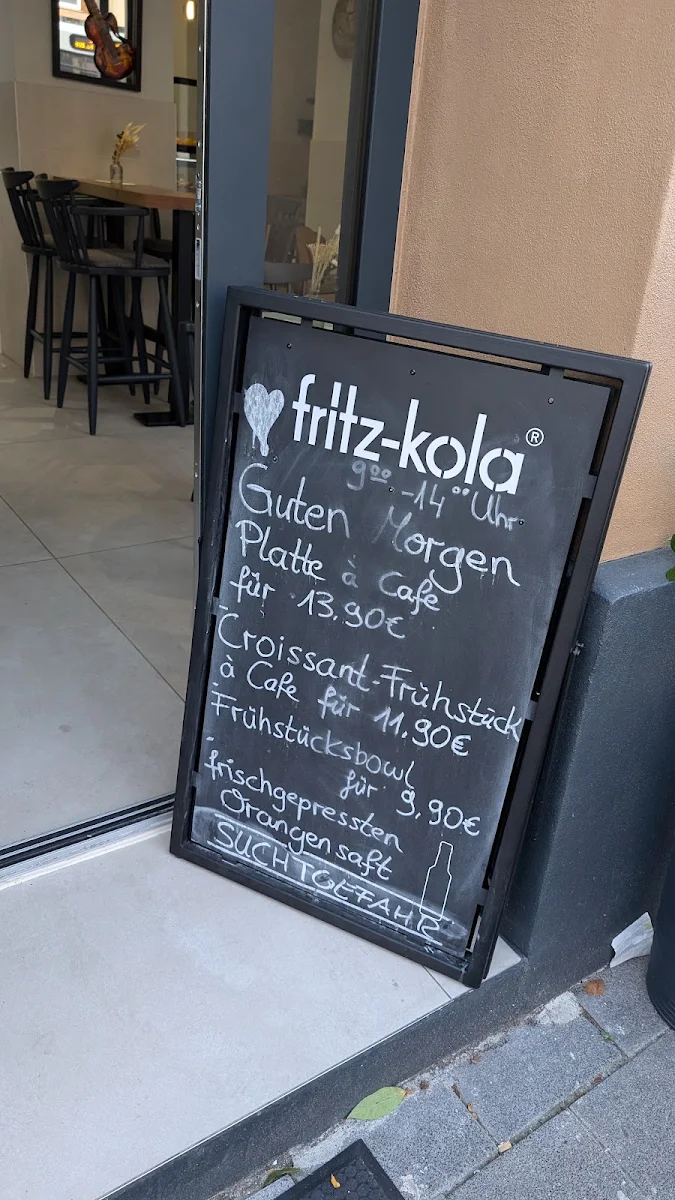 fritz-kola®
9⁰⁰ - 14⁰⁰ Uhr
Guten Morgen
Platte à Cafe
für 13.90€
- Croissant-Frühstück
à Cafe für 11.90€
- Frühstücksbowl
für 9,90€
- frischgepressten
Orangensaft
SUCHTGEFAHR